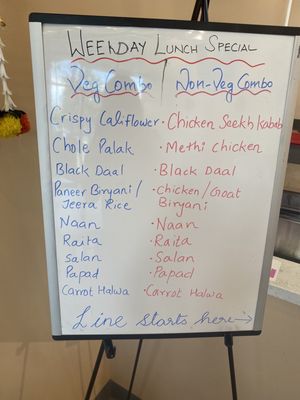 WEEKDAY LUNCH SPECIAL
Veg Combo
Crispy Califlower
Chole Palak
Black Daal
Paneer Biryani /
Jeera Rice
Naan
Raita
Salan
Papad
Carrot Halwa
Non-Veg Combo
• Chicken Seekh Kabab
• Methi Chicken
• Black Daal
• Chicken/Goat
Biryani
• Naan
• Raita
• Salan
• Papad
• Carrot Halwa
Line starts here →